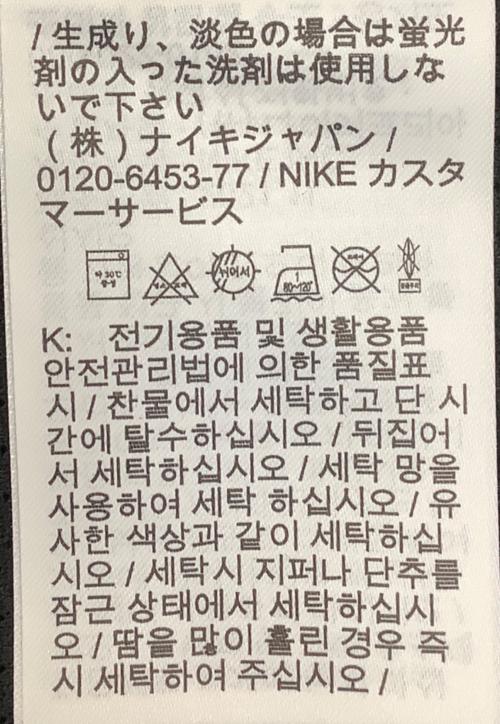 / 生成り、淡色の場合は蛍光
剤の入った洗剤は使用しな
いで下さい
(株)ナイキジャパン /
0120-6453-77 / NIKE カスタ
マーサービス
약 30℃
뉘어서
1
80~120°
K: 전기용품 및 생활용품
안전관리법에 의한 품질표
시 / 찬물에서 세탁하고 단 시
간에 탈수하십시오 / 뒤집어
서 세탁하십시오 / 세탁 망을
사용하여 세탁 하십시오 / 유
사한 색상과 같이 세탁하십
시오 / 세탁시 지퍼나 단추를
잠근 상태에서 세탁하십시
오 / 땀을 많이 흘린 경우 즉
시 세탁하여 주십시오 /